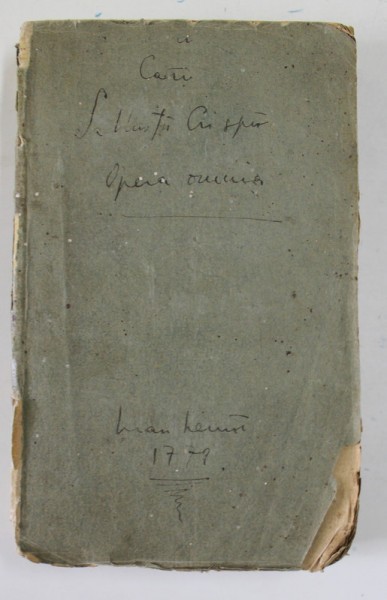 Caii
Sallustii Crispi
Opera omnia
Manhemii
1779